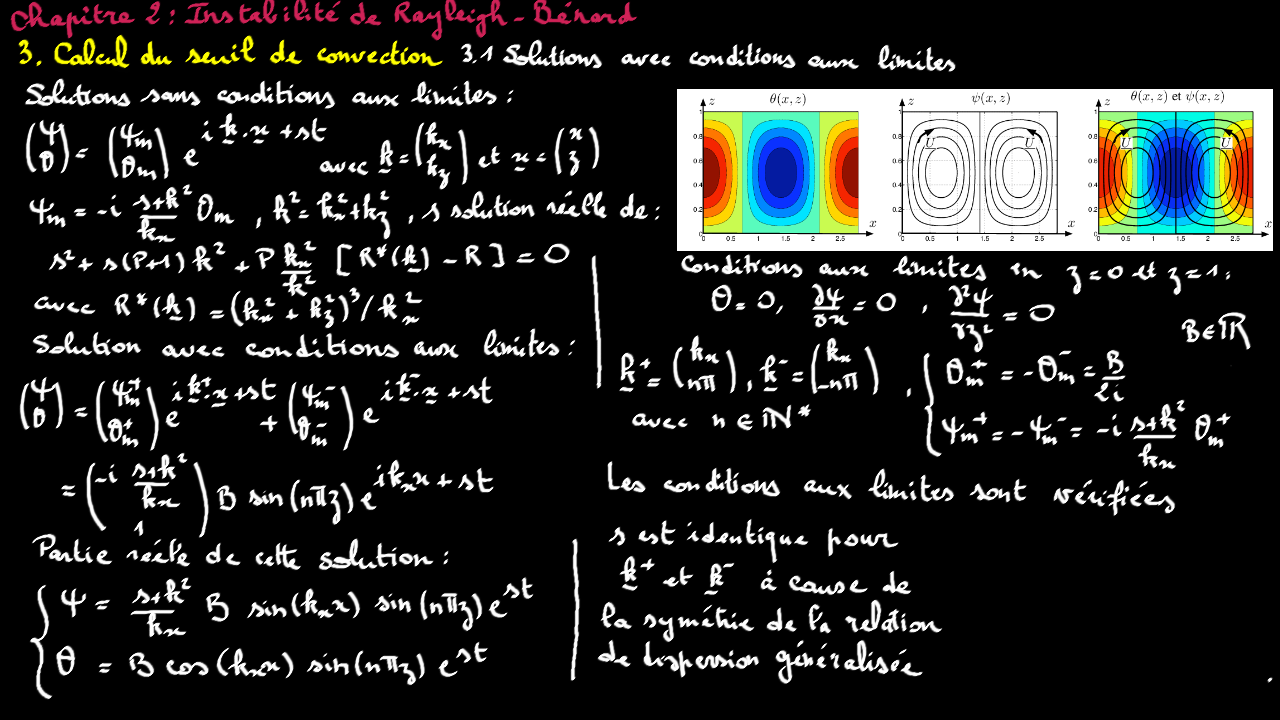 Chapitre 2 : Instabilité de Rayleigh-Bénard
3. Calcul du seuil de convection 3.1 Solutions avec conditions aux limites
Solutions sans conditions aux limites :
(ψ θ) = (ψm θm) e^{i k.x + st} avec k = (kx kz) et x = (x z)
ψm = -i (s+k²)/kx θm , k² = kx² + kz² , s solution réelle de :
s² + s(P+1) k² + P kx²/k² [ R*(k) - R ] = 0
avec R*(k) = (kx² + kz²)³ / kx²
Solution avec conditions aux limites :
(ψ θ) = (ψm⁺ θm⁺) e^{i k⁺.x + st} + (ψm⁻ θm⁻) e^{i k⁻.x + st}
= (-i (s+k²)/kx 1) B sin(nπz) e^{i kx x + st}
Partie réelle de cette solution :
ψ = (s+k²)/kx B sin(kx x) sin(nπz) e^{st}
θ = B cos(kx x) sin(nπz) e^{st}
z θ(x, z) x
1 0.8 0.6 0.4 0.2 0
0 0.5 1 1.5 2 2.5
z ψ(x, z) x
U U
1 0.8 0.6 0.4 0.2 0
0 0.5 1 1.5 2 2.5
z θ(x, z) et ψ(x, z) x
U U
1 0.8 0.6 0.4 0.2 0
0 0.5 1 1.5 2 2.5
Conditions aux limites en z = 0 et z = 1 :
θ = 0, ∂ψ/∂x = 0 , ∂²ψ/∂z² = 0
B ∈ ℝ
k⁺ = (kx nπ) , k⁻ = (kx -nπ) , { θm⁺ = -θm⁻ = B/2i
avec n ∈ ℕ*
ψm⁺ = -ψm⁻ = -i (s+k²)/kx θm⁺
Les conditions aux limites sont vérifiées
s est identique pour
k⁺ et k⁻ à cause de
la symétrie de la relation
de dispersion généralisée